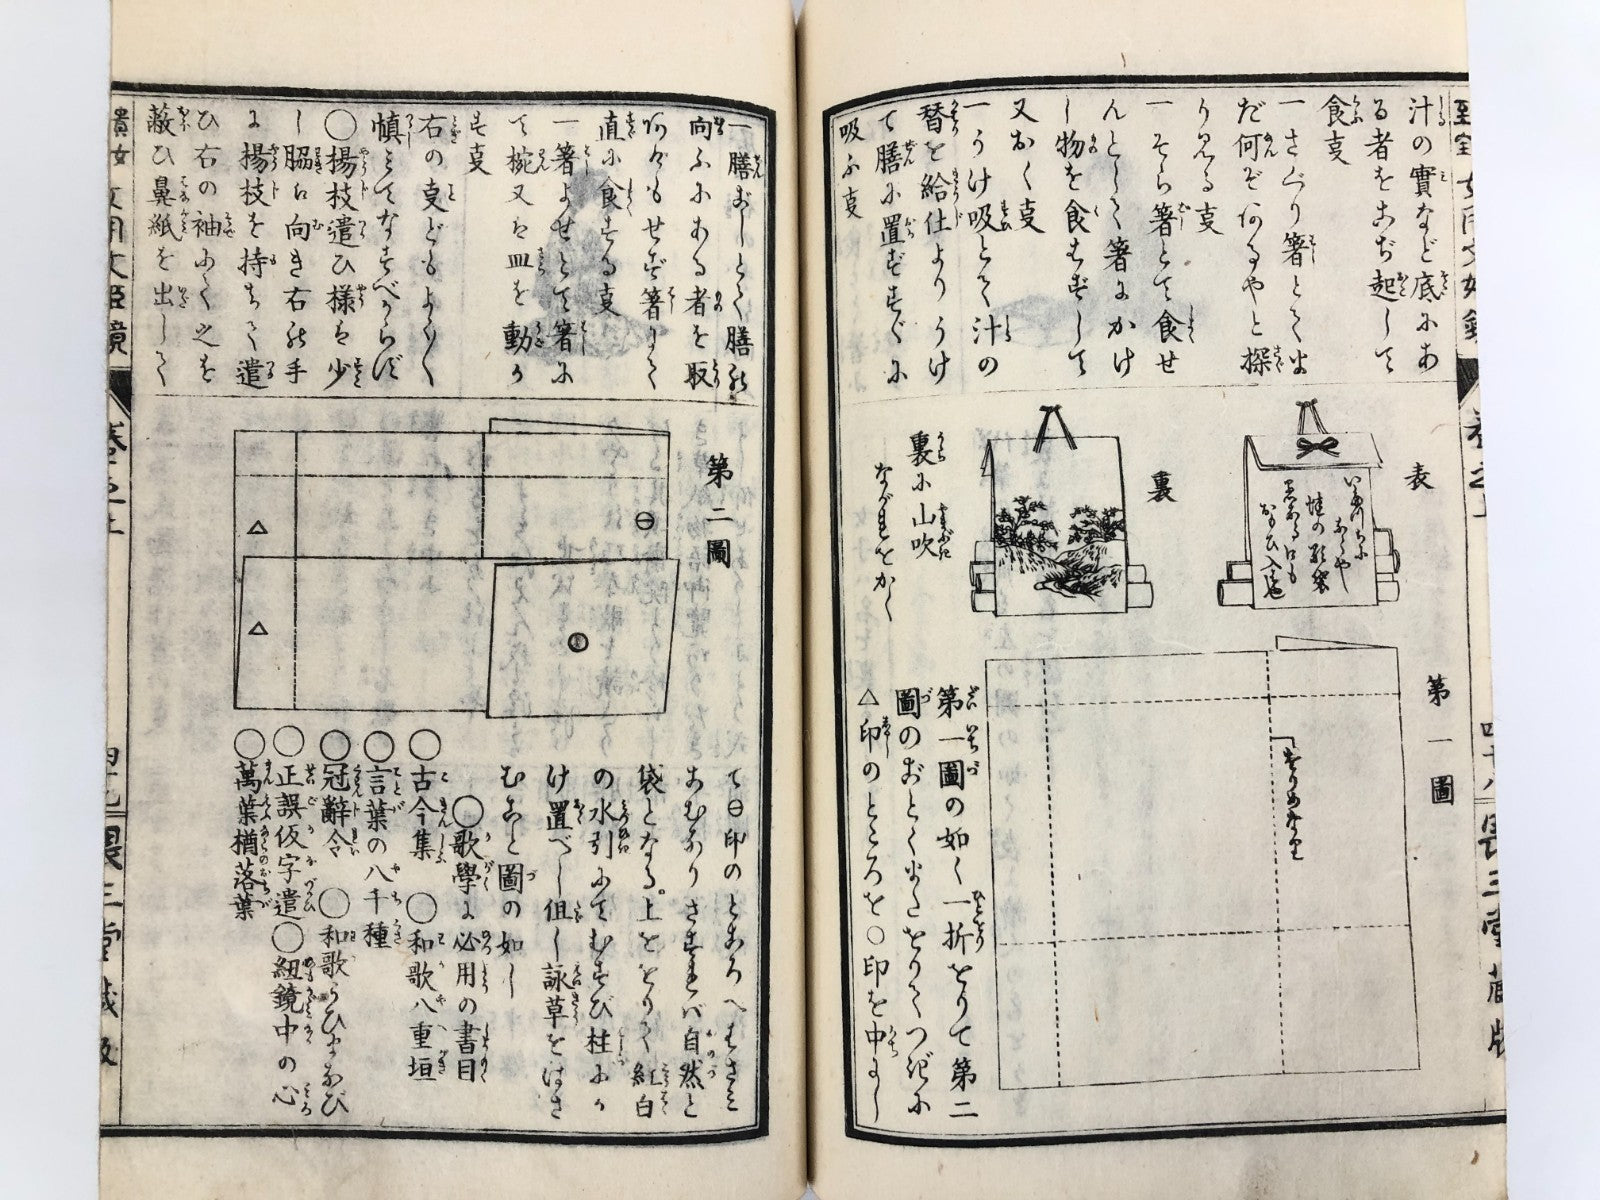 汁の實など底にあ
る者をこぢ起して
食事
一さぐり箸とて ま
だ何ぞ何るやと探
り見る事
一そら箸とて食せ
んとして箸にかけ
し物を食はずして
又おく事
一うけ吸とて汁の
替を給仕よりうけ
て膳に置ずすぐに
吸ふ事
表
裏
裏に山吹
ながれをかく
第一圖
第一圖の如く一折をりて第二
圖のおとくまたをりてつぎに
△印のところを○印を中にし
一膳おしとて膳の
向ふにある者を取
何がもせず箸にて
直に食する事
一箸よせとて箸に
て椀又は皿を動か
す事
右の事どもよくよく
慎みてなすべからず
○楊枝遣ひ様は少
し脇に向き右の手
に楊枝を持ちて遣
ひ右の袖にて之を
蔽ひ鼻紙を出して
第二圖
て⊖印のところへはさみ
こむなりさすれバ自然と
袋となる。上をとりて紅白
の水引にてむすび柱にか
け置べし但し詠草をはさ
むこと圖の如し
○歌學に必用の書目
○古今集 ○和歌八重垣
○言葉の八千種
○冠辭令 ○和歌うひまなび
○正誤仮字遣○紐鏡中の心
○萬葉檜落葉